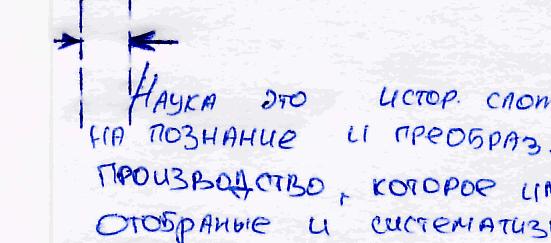 Наука это истор. слож
на познание и преобраз.
производство, которое им
отобраные и систематиз